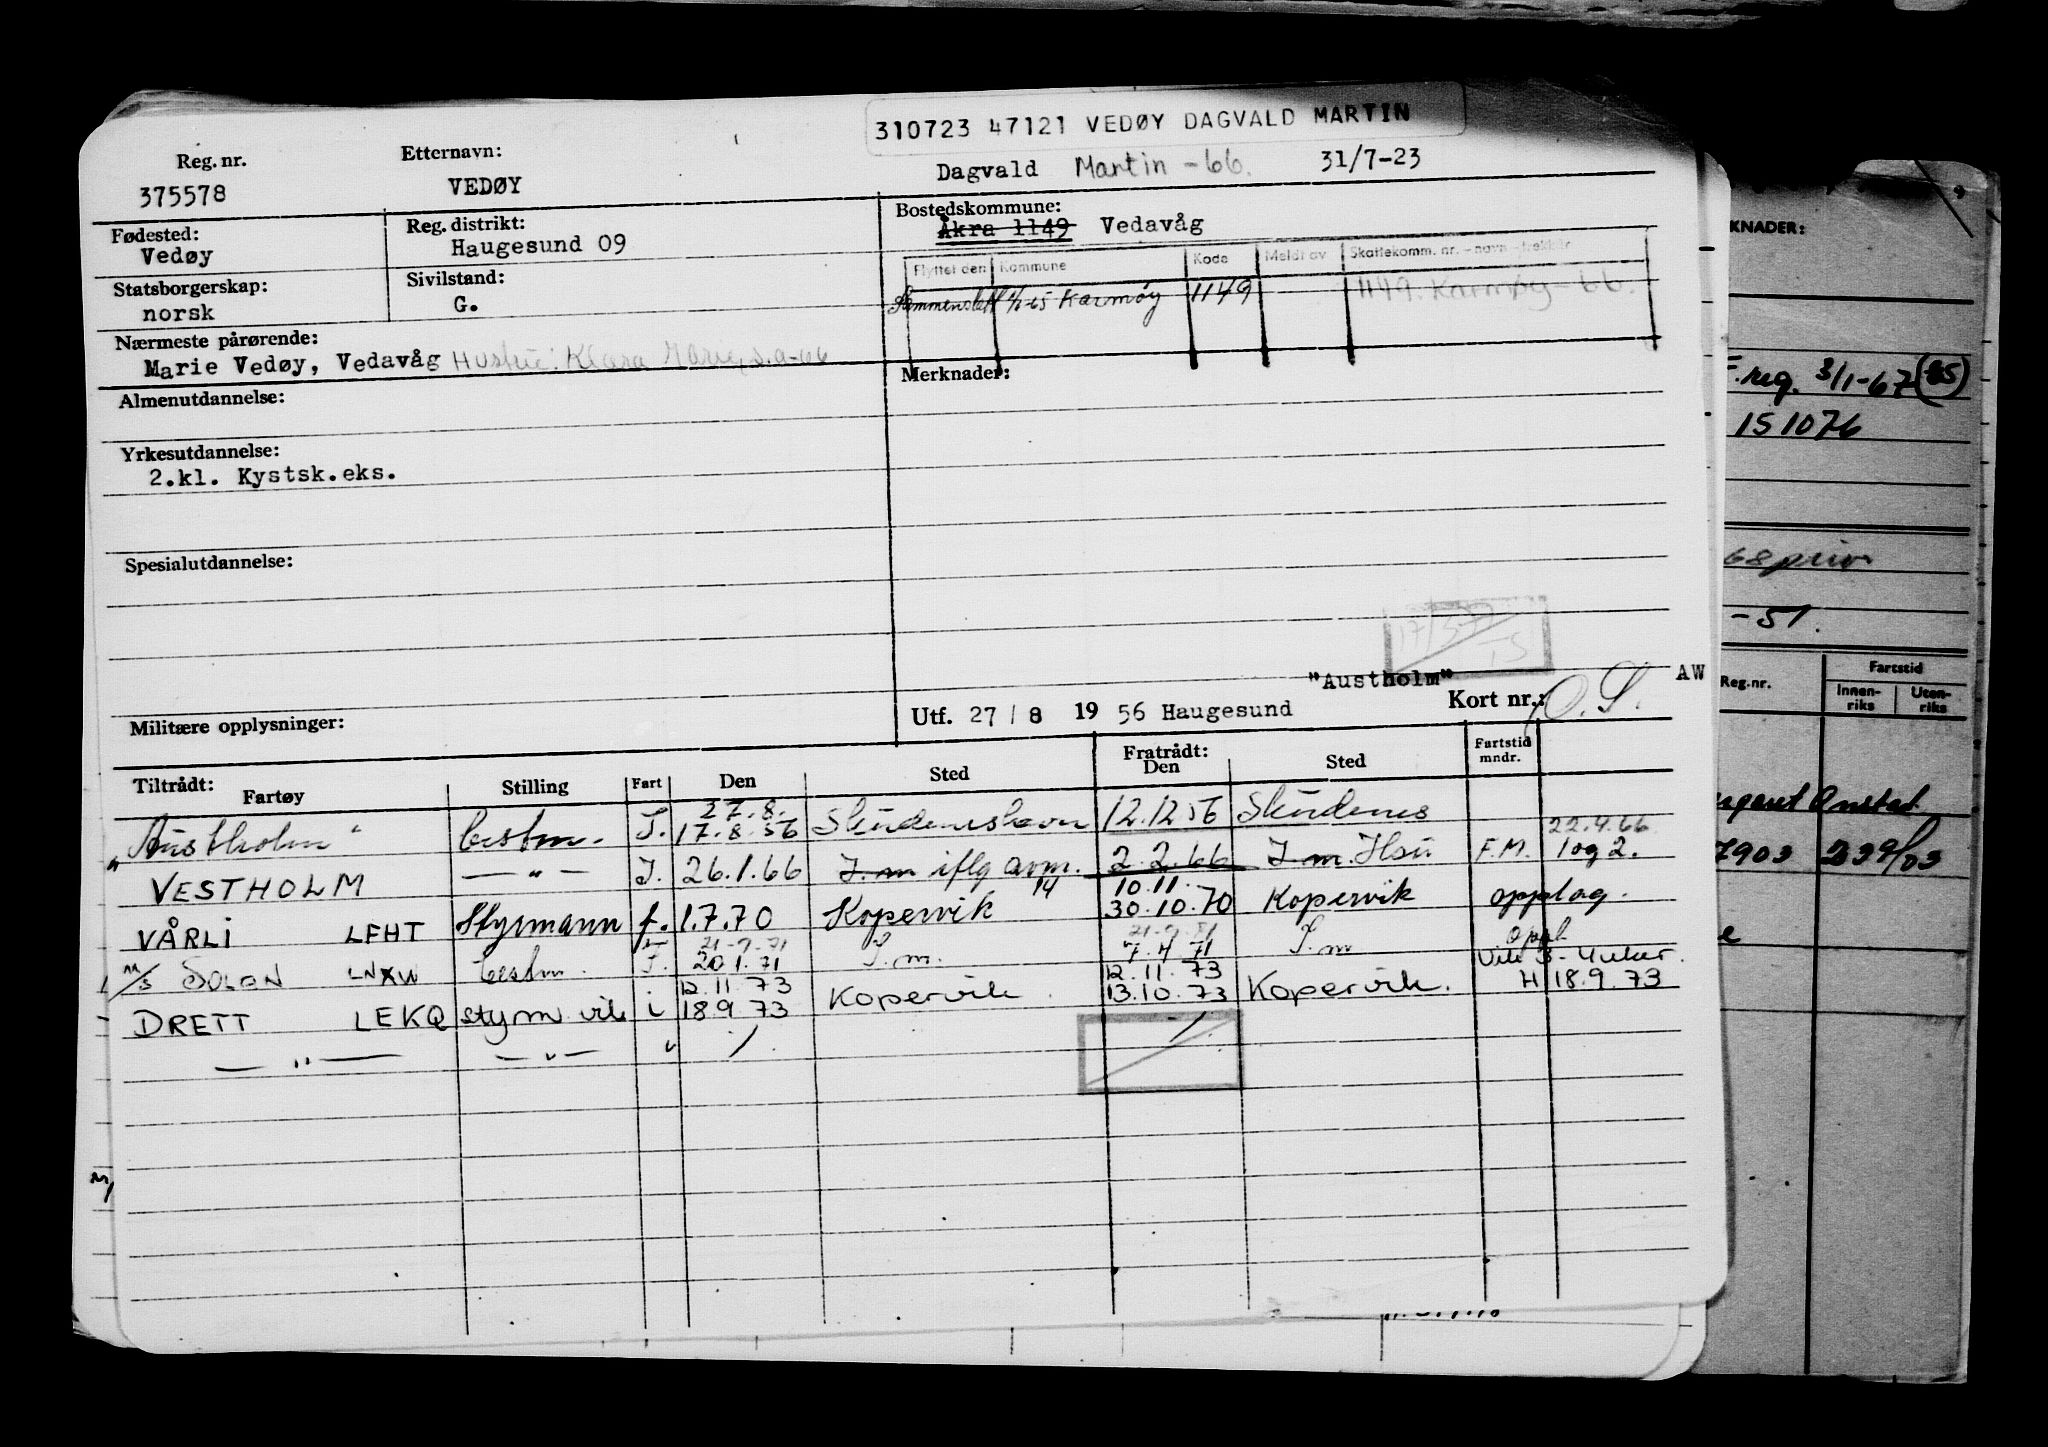 310723 47121 VEDØY DAGVALD MARTIN
Reg. nr. Etternavn:
375578 VEDØY Dagvald Martin -66. 31/7-23
Fødested: Vedøy
Reg. distrikt: Haugesund 09
Bostedskommune: Åkra 1149 Vedavåg
Flyttet den Kommune Kode Meldt av Skattekomm. nr. - navn - trekkår
Sammenslått 1/1-65 Karmøy 1149 1149. Karmøy - 66.
Statsborgerskap: norsk
Sivilstand: G.
Nærmeste pårørende:
Marie Vedøy, Vedavåg Hustru: Klara Marie, s.a-66
Merknader:
Almenutdannelse:
Yrkesutdannelse:
2.kl. Kystsk.eks.
Spesialutdannelse:
"Austholm" AW
Militære opplysninger:
Utf. 27/8 1956 Haugesund Kort nr.: O.S.
Tiltrådt: Fratrådt: Fartstid mndr.
Fartøy Stilling Fart Den Sted Den Sted
27.8.
"Austholm" bestm. I. 17.8.56 Skudeneshavn 12.12 56 Skudenes
22.4.66
VESTHOLM — " — I. 26.1.66 I.m iflg avm. 2.2.66 I.m. Hsu F.M. 1 og 2.
14 10.11.
VÅRLI LFHT Styrmann f. 1.7.70 Kopervik 30.10.70 Kopervik opplag.
21-9-71 oppl.
M/S SOLON LNXW bestm. I. 20.1.71 I.m. 7.4.71 I.m Vik 3-4 uker.
12.11.73 12.11.73
DRETT LEKQ styrm vik i 18.9.73 Kopervik. 13.10.73 Kopervik. H 18.9.73
— " — — " — " /. /.
KNADER:
F.reg. 3/1-67 (65)
151076
68 priv
-51.
Reg.nr. Fartstid
Innen-riks Uten-riks
Onstad
7903 239/03
e
M/